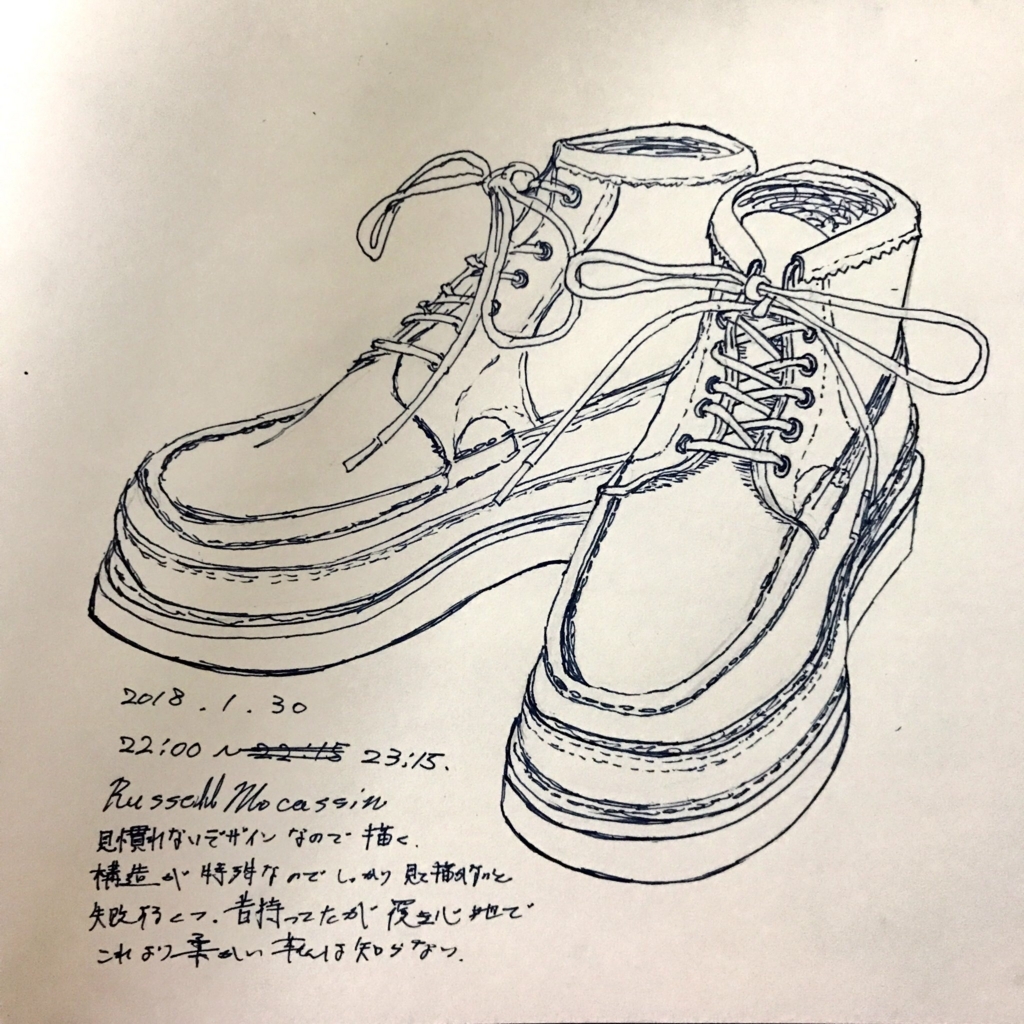 2018.1.30
22:00 ~ 22:15 23:15.
Russell Mocassin
見慣れないデザインなので描く.
構造が特殊なのでしっかり見て描かないと
失敗する. 昔持ってたが 履き心地で
これより柔らかい 靴は知らない.